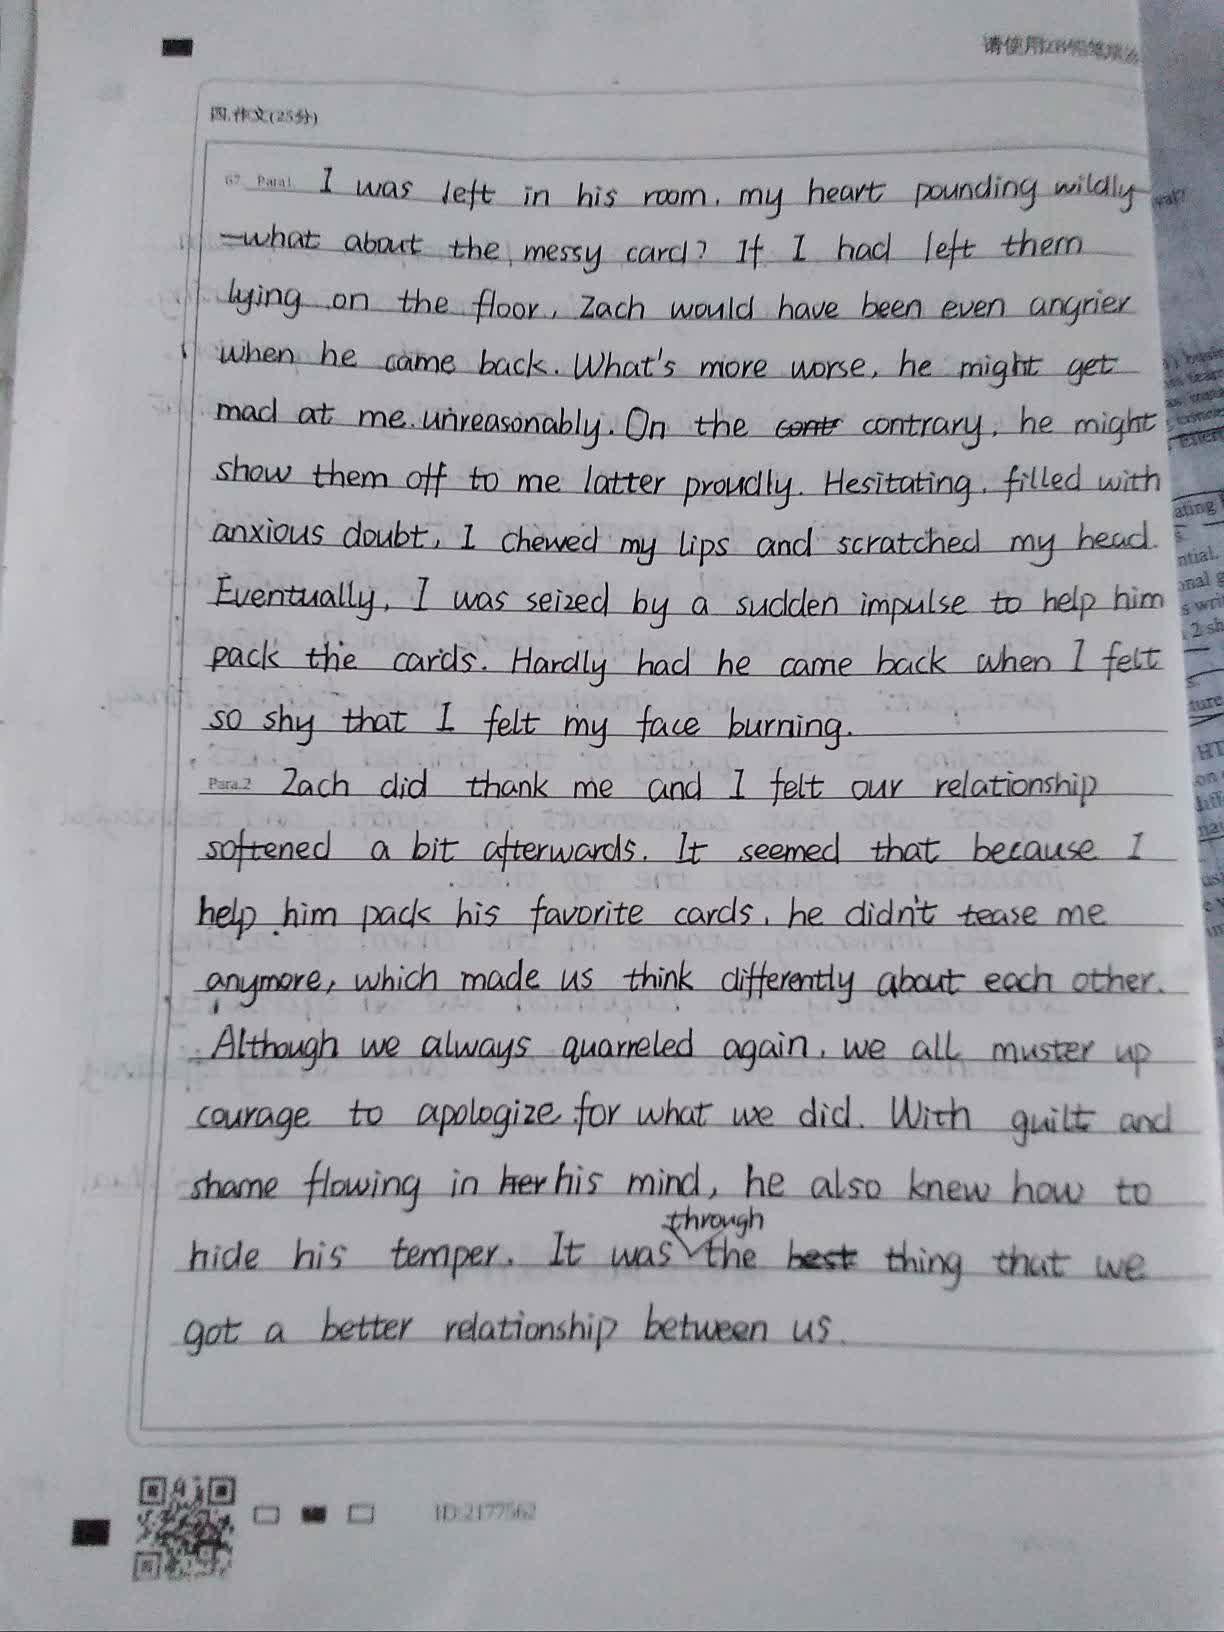 请使用2B铅笔填涂
四.作文(25分)
67. Para1 I was left in his room, my heart pounding wildly
—what about the messy card? If I had left them
lying on the floor, Zach would have been even angrier
when he came back. What's more worse, he might get
mad at me unreasonably. On the contr contrary, he might
show them off to me latter proudly. Hesitating, filled with
anxious doubt, I chewed my lips and scratched my head.
Eventually, I was seized by a sudden impulse to help him
pack the cards. Hardly had he came back when I felt
so shy that I felt my face burning.
Para.2 Zach did thank me and I felt our relationship
softened a bit afterwards. It seemed that because I
help him pack his favorite cards, he didn't tease me
anymore, which made us think differently about each other.
Although we always quarreled again, we all muster up
courage to apologize for what we did. With guilt and
shame flowing in her his mind, he also knew how to
through
hide his temper. It was the best thing that we
got a better relationship between us.
ID:2177562